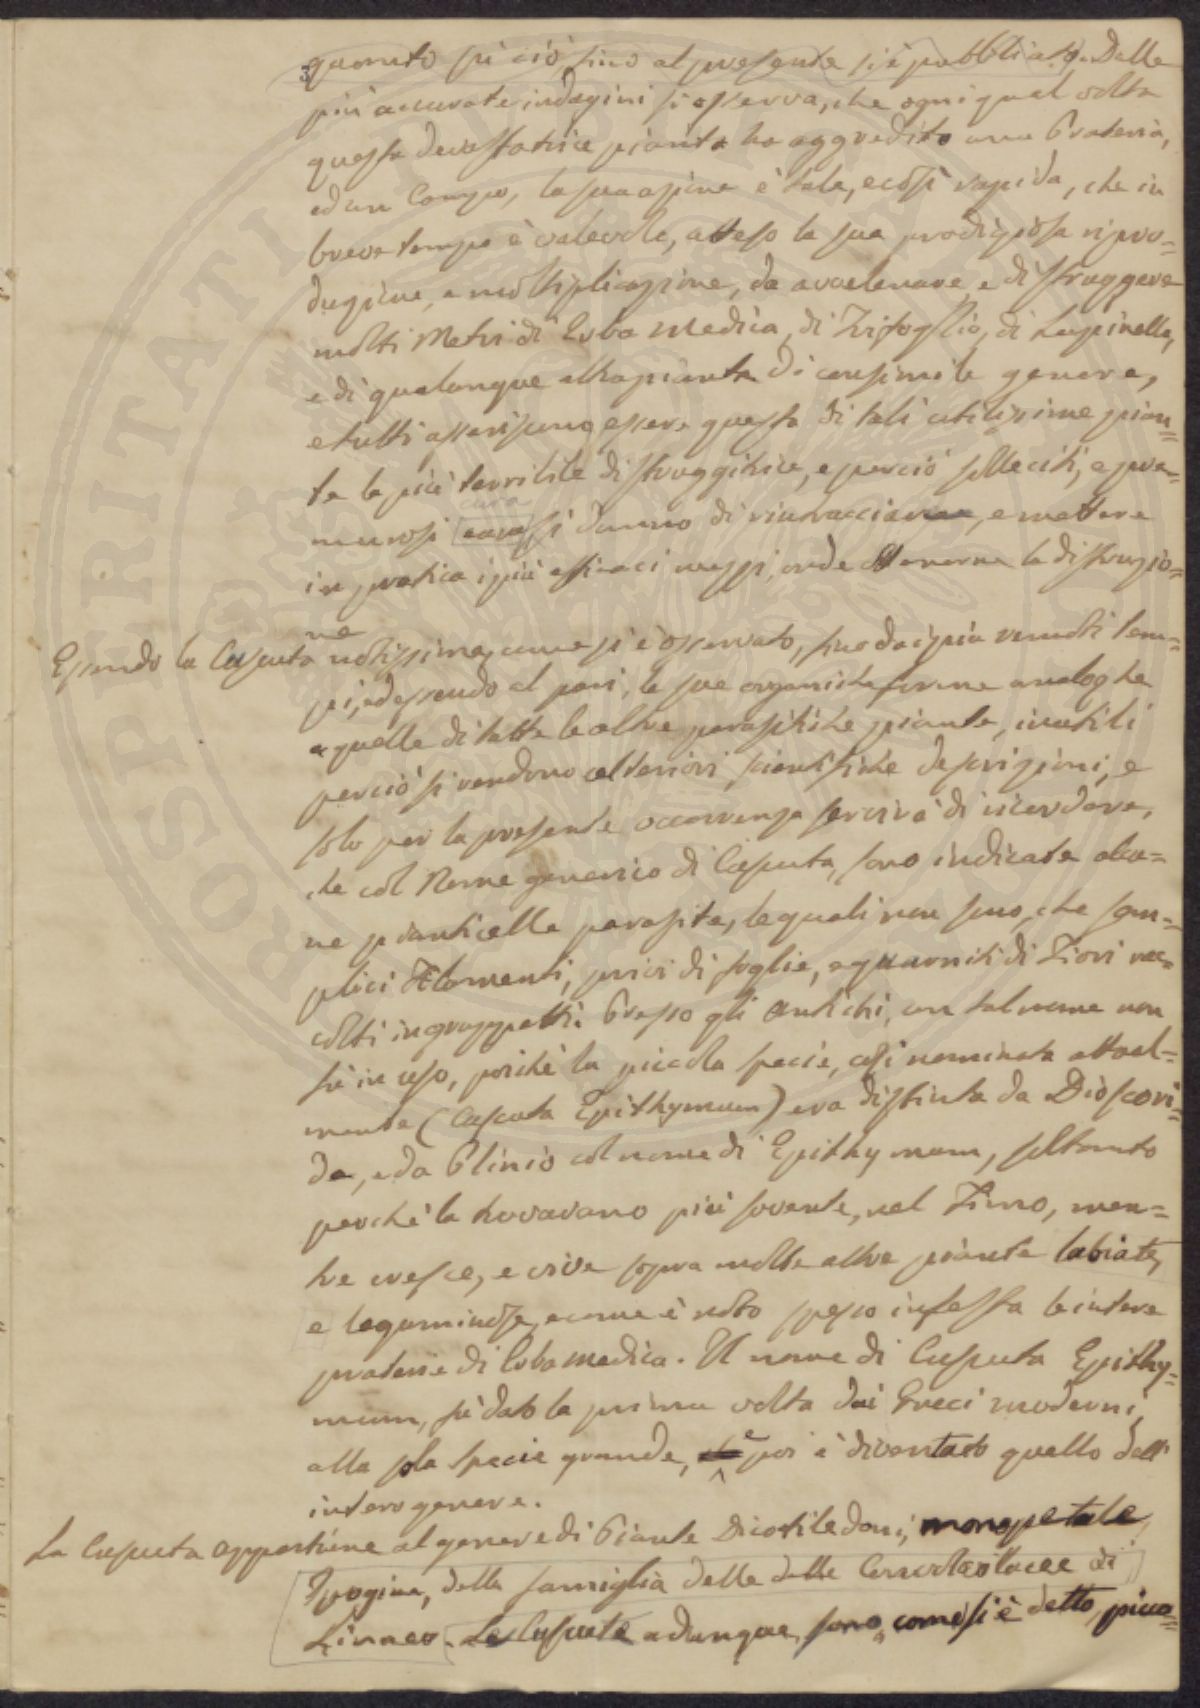 quanto su ciò, sino al presente si è pubbliato. Dalle
più accurate indagini si osserva, che ogni qual volta
questa devastatrice pianta ha aggredito una Prateria,
ed un Campo, la sua azione è tale, e così rapida, che in
breve tempo è valevole, atteso la sua prodigiosa ripro=
duzione, e moltiplicazione, da avvelenare e distruggere
molti Metri di Erba Medica, di Trifoglio, di Lupinella,
e di qualunque altra pianta di consimile genere,
e tutti asseriscono essere questa di tali utilissime pian=
te la più terribile distruggitrice, e perciò solleciti, e pre=
cura
murosi si danno di rintracciare, e mettere
in pratica i più efficaci mezzi, onde ottenerne la distruzio=
ne
Essendo la Cuscuta notissima, come si è osservato, sino dai più remoti tem=
pi, ed essendo al pari, le sue organiche forme analoghe
a quelle di tutte le altre parasitiche piante, inutili
perciò si rendono ulteriori scientifiche descrizioni, e
solo per la presente occorrenza servirà di ricordare,
che col Nome generico di Cuscuta, sono indicate alcu=
ne pianticelle parasite, le quali non sono, che sem=
plici Filamenti, privi di foglie, e guarniti di Fiori rac=
colti in grappetti. Presso gli Antichi, un tal nome non
fù in uso, poichè la piccola specie, così nominata attual=
mente (Cuscuta Epithymum) era distinta da Dioscori=
de, e da Plinio col nome di Epithymum, soltanto
perchè la trovavano più sovente, nel Timo, men=
tre cresce, e vive sopra molte altre piante labiate,
e leguminose, e come è noto spesso infesta le intere
praterie di Erba medica. Il nome di Cuscuta Epithy=
mum, fù dato la prima volta dai Greci moderni,
alla sola specie grande, e poi è diventato quello dell'
intero genere.
La Cuscuta appartiene al genere di Piante Dicotiledoni, monopetale,
Ipogine, della famiglia delle delle Convolvolacee di
Linneo. Le Cuscute adunque, sono, come si è detto, picco=
PROSPERITATI PUBLICAE